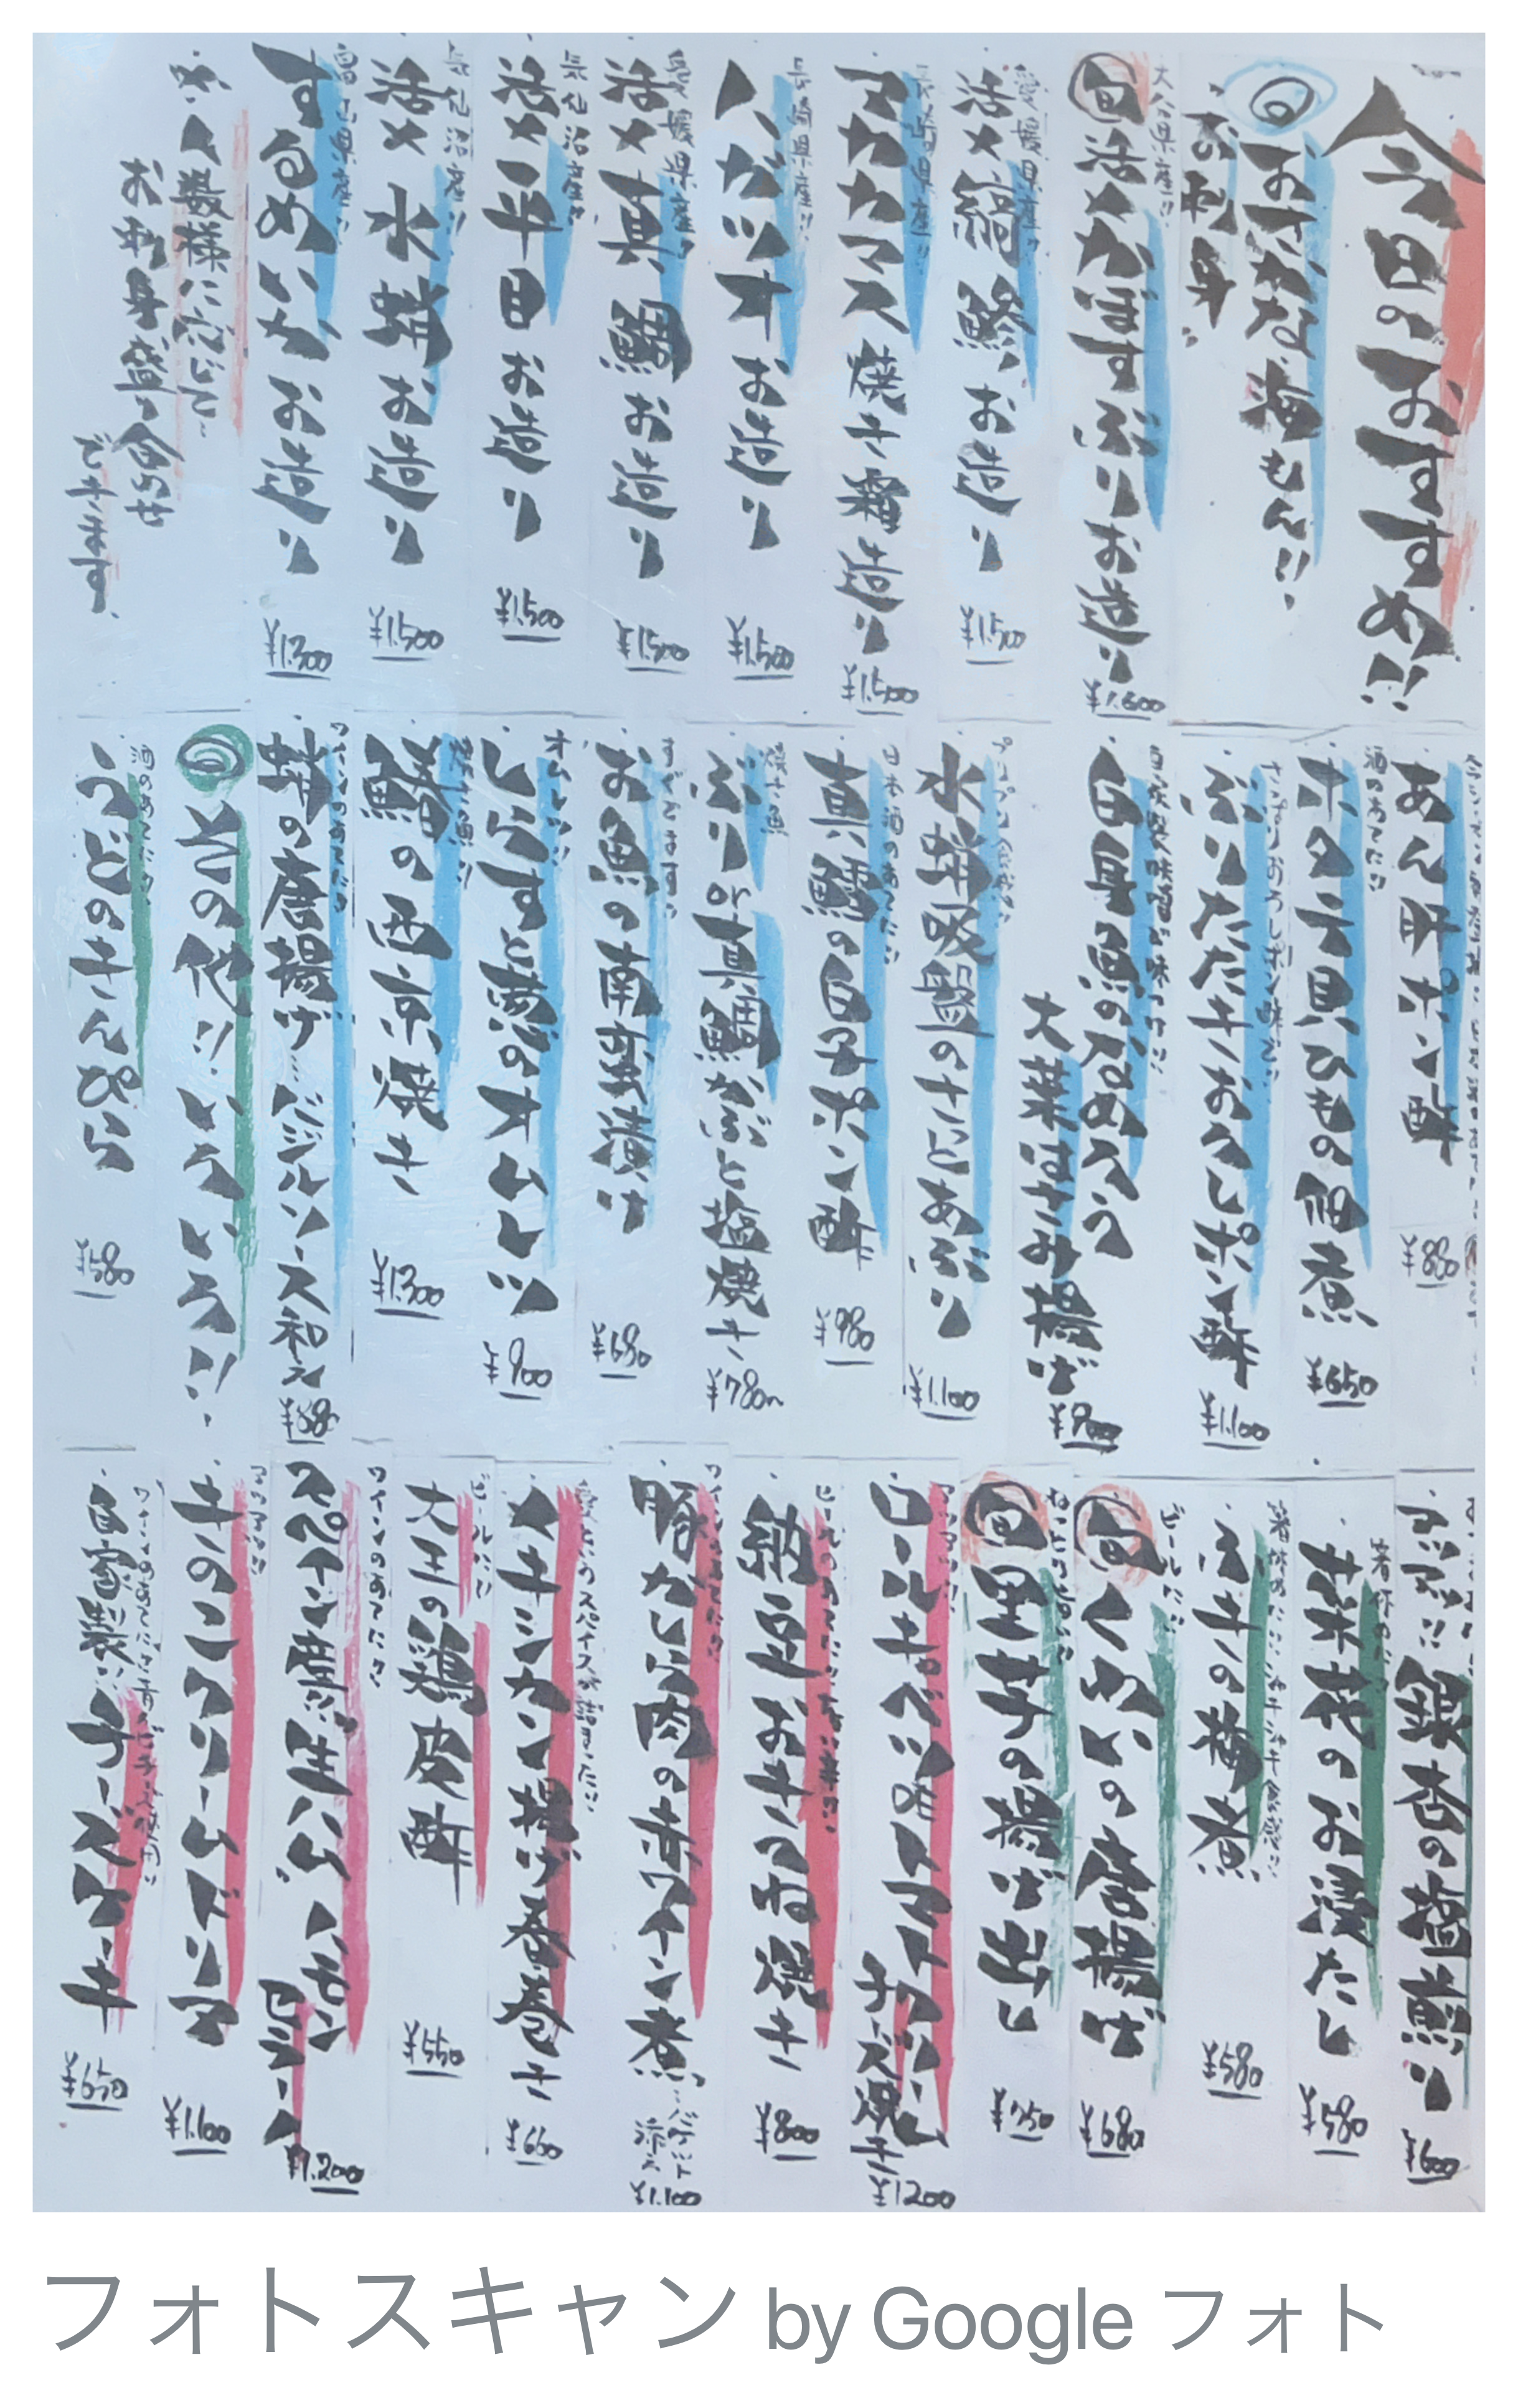 今日のおすすめ!!
◎おさかな海もん!!
お刺身
大分県産!!
旬 活〆かぼすぶりお造り ¥1.600
愛媛県産!!
活〆縞鯵お造り ¥1.500
長崎県産!!
アカカマス焼き霜造り ¥1.500
長崎県産!!
ハガツオお造り ¥1.500
愛媛県産!!
活〆真鯛お造り ¥1.500
気仙沼産!!
活〆平目お造り ¥1.500
気仙沼産!!
活〆水蛸お造り ¥1.500
富山県産!!
するめいかお造り ¥1.300
人数様に応じて
お刺身盛り合わせ
できます。
あん肝ポン酢 ¥880
酒のあてに!!
ホタテ貝ひもの佃煮 ¥650
さっぱりおろしポン酢で!!
ぶりたたきおろしポン酢 ¥1.100
自家製味噌が味の
白身魚のなめろう
大葉はさみ揚げ ¥900
水蛸吸盤のなっとあぶり ¥1.100
日本酒のあてに!!
真鱈の白子ポン酢 ¥980
焼き魚
ぶりor真鯛かぶと塩焼き ¥780〜
すぐでます!!
お魚の南蛮漬け ¥680
オムレツ!!
しらすと葱のオムレツ ¥900
焼き魚!!
鰆の西京焼き ¥1.300
ワインのあてに!!
蛸の唐揚げ バジルソース和え ¥880
◎その他!!いろいろ!!
酒のあてに!!
うどのきんぴら ¥580
銀杏の塩煎り ¥600
菜花のお浸たし ¥580
ふきの梅煮 ¥580
ビールに!!
旬 くわいの唐揚げ ¥680
旬 里芋の揚げ出し ¥750
アツアツ!!
ロールキャベツのトマトクリームチーズ焼き ¥1200
納豆おきつね焼き ¥800
ワインのあてに!!
豚かしら肉の赤ワイン煮 バゲット添え ¥1.100
メキシカン揚げ春巻き ¥660
ビールに!!
大王の鶏皮酢 ¥550
ワインのあてに!!
スペイン産!!生ハム ハモンセラーノ ¥1.200
アツアツ!!
きのこクリームドリア ¥1.100
自家製!!チーズケーキ ¥650
フォトスキャン by Google フォト